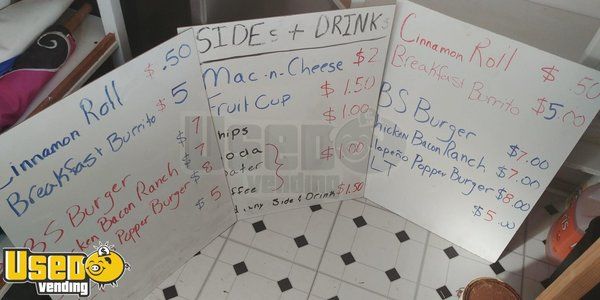 Cinnamon Roll $ .50
Breakfast Burrito $ 5
BS Burger $ 7
Chicken Bacon Ranch $ 7
Popper Burger $ 8
$ 5
SIDEs + DRINKs
Mac-n-Cheese $2
Fruit Cup $1.50
Chips $1.00
Soda
Water } $1.00
Coffee
Any Side & Drink $1.50
Cinnamon Roll $ .50
Breakfast Burrito $5.00
BS Burger $7.00
Chicken Bacon Ranch $7.00
Jalapeño Popper Burger $8.00
BLT $5.00
Used vending
Used vending